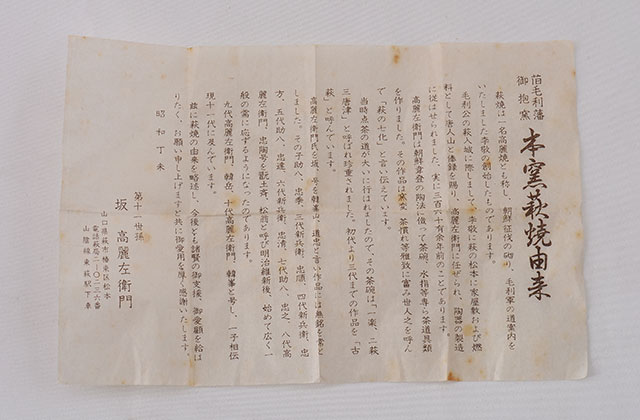 旧毛利藩
御抱窯
本窯萩焼由来
萩焼は一名高麗焼とも称し、朝鮮征伐の砌り、毛利軍の道案内を
いたしました李敬の創始したものであります。
毛利公の萩入城に際しまして、李敬に萩の松本に家屋敷および燃
料として唐人山と俸録を賜り、高麗左衛門に任ぜられ、陶器の製造
に従はせられました。実に三百六十有余年前のことであります。
高麗左衛門は朝鮮章登の陶法に倣って茶碗、水指等専ら茶道具類
を作りました。その作品は窯変、茶慣れ等雅致に富み世人之を呼ん
で「萩の七化」と言い伝えています。
当時点茶の道が大いに行はれましたので、その茶碗は「一楽、二萩
三唐津」と呼ばれ珍重されました。初代より三代までの作品を「古
萩」と呼んでいます。
高麗左衛門氏を坂、号を韓峯山、道忠と言い作品には無銘を常と
しました。その子助八、忠季、三代新兵衛、忠順、四代新兵衛、忠
方、五代助八、忠達、六代新兵衛、忠清、七代助八、忠之、八代高
麗左衛門、忠陶号を翫土斉、松翁と呼び明治維新後、始めて広く一
般の需に応ずるようになったのであります。
九代高麗左衛門、韓岳、十代高麗左衛門、韓峯と号し、一子相伝
現十一代に及んでいます。
茲に萩焼の由来を略述し、今後とも諸賢の御支援、御愛顧を給は
りたく、お願い申し上げますと共に御愛用を厚く感謝いたします。
昭和丁未
第十一世孫
坂 高麗左衛門
山口県萩市椿東区松本
電話萩局二-〇二三六番
山陰線東萩駅下車